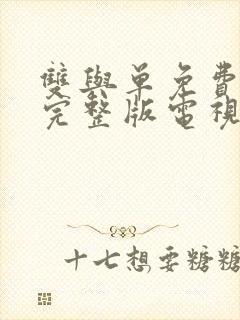 雙與單免費
完整版電視
十七想要糖糖